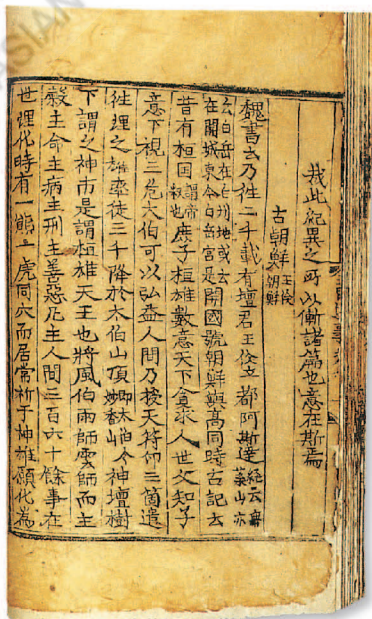 ASIAN
哉此紀異之所以慚諸篇也意在斯焉
古朝鮮 王倹朝鮮
魏書云乃徃二千載有壇君王倹立都阿斯逹 經云無葉山亦
云白岳在白州地或云在開城東今白岳宮是 開國號朝鮮與高同時古記云
昔有桓国 謂帝釋也 庶子桓雄數意天下貪求人世父知子
意下視三危太伯可以弘益人間乃授天符印三箇遣
徃理之雄率徒三千降於太伯山頂 即太伯今妙香山 神壇樹
下謂之神市是謂桓雄天王也將風伯雨師雲師而主
穀主命主病主刑主善惡凡主人間三百六十餘事在
世理化時有一熊一虎同穴而居常祈于神雄願化為